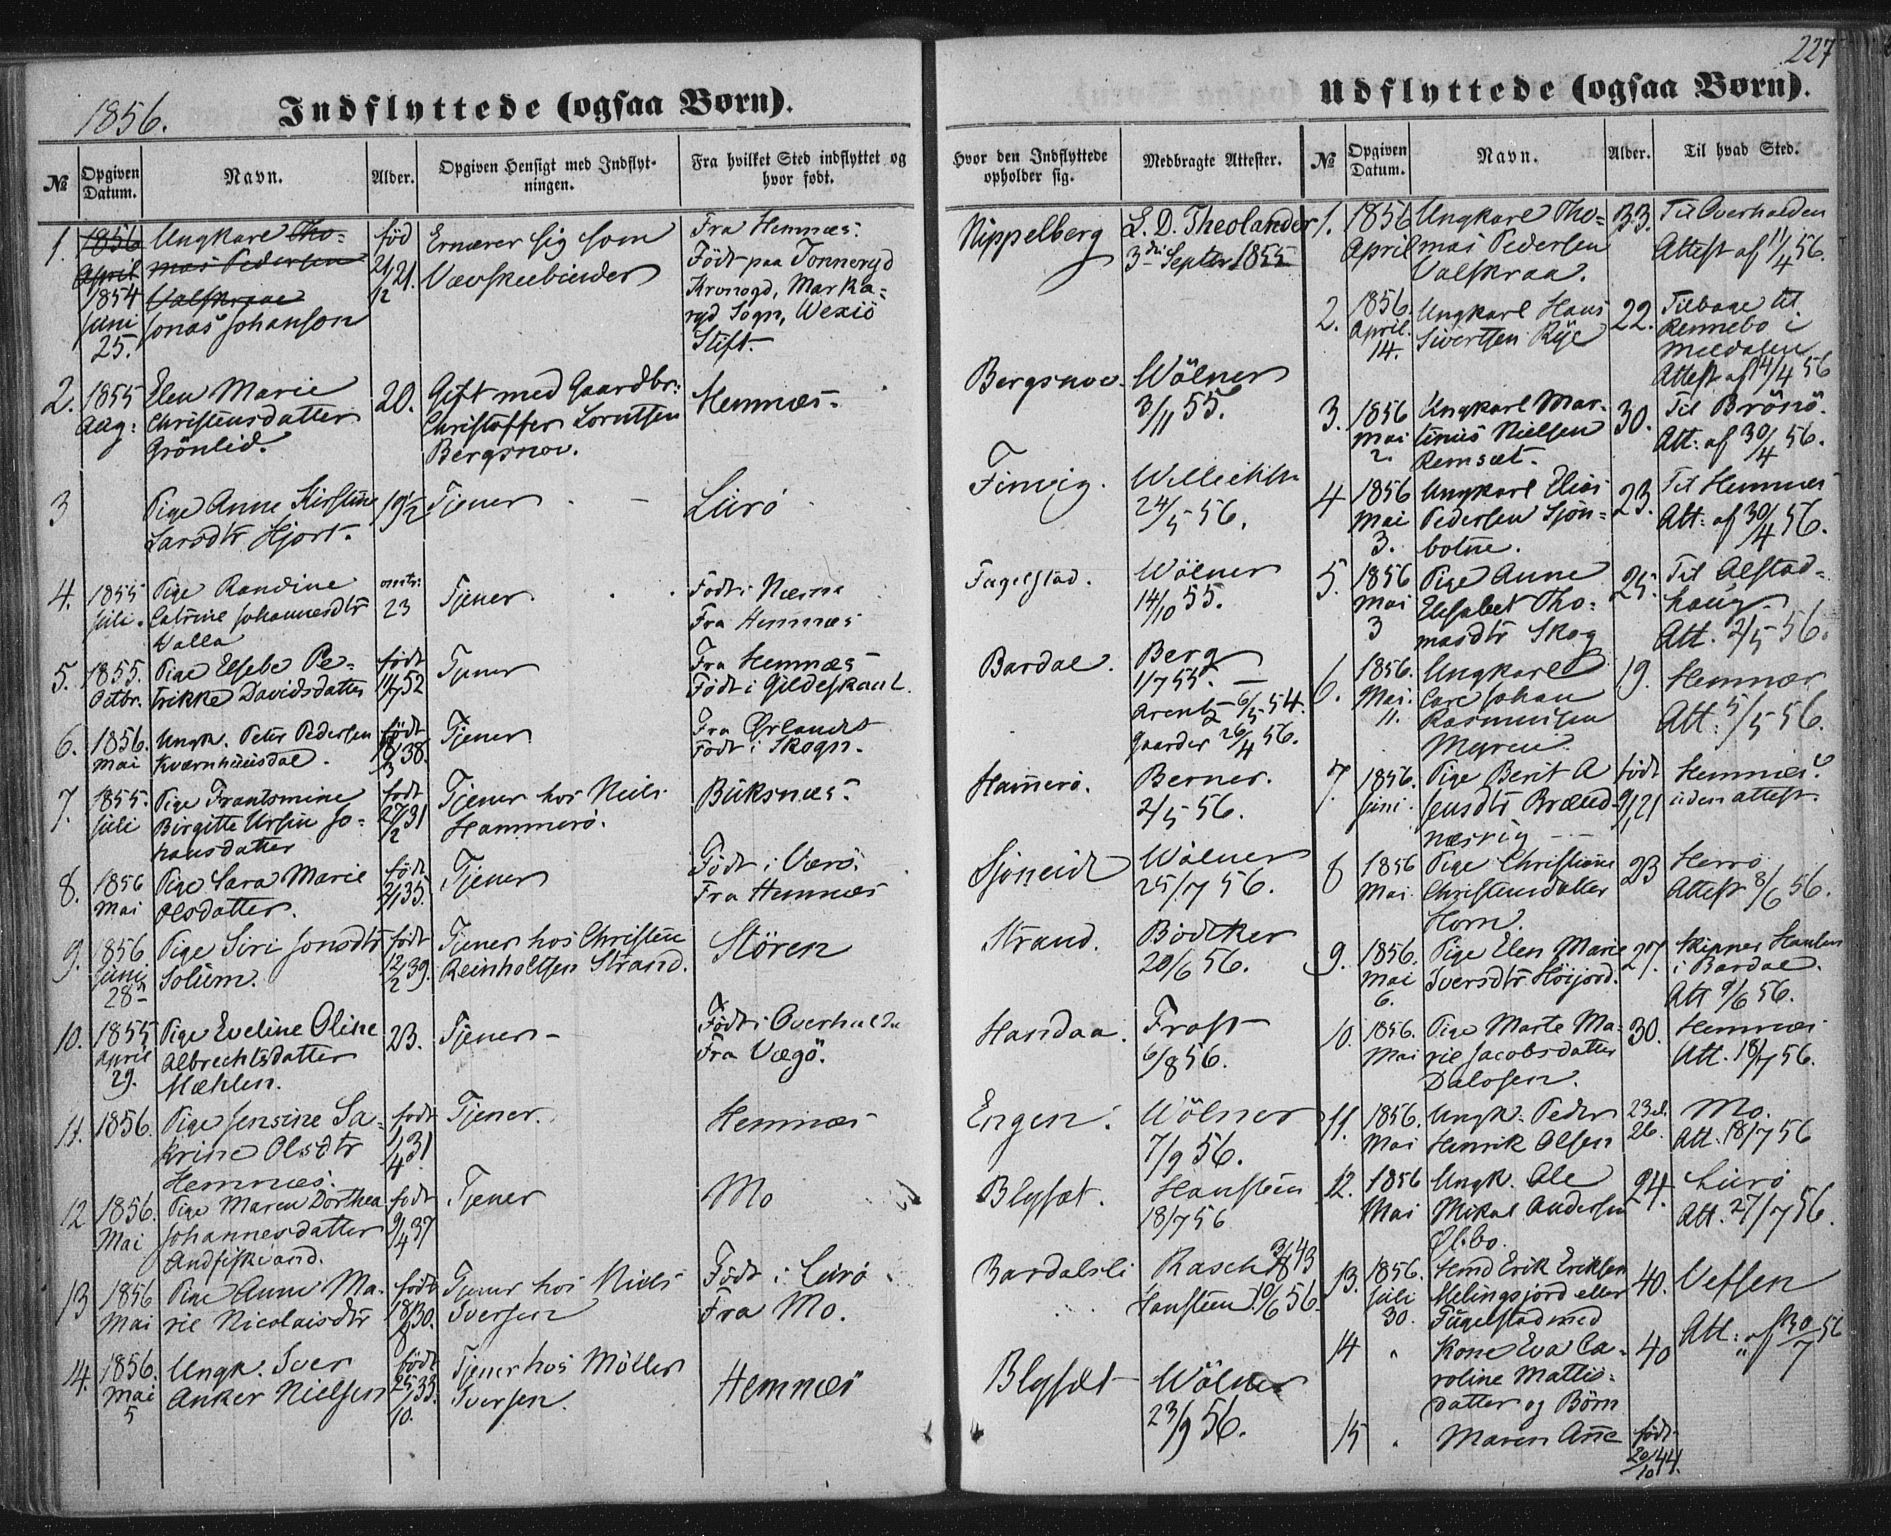 1856.
Indflyttede (ogsaa Børn).
№
Opgiven Datum.
Navn.
Alder.
Opgiven Hensigt med Indflyt-
ningen.
Fra hvilket Sted indflyttet og
hvor født.
1.
1856
April
1854
Juni
25.
Ungkarl Tho-
mas Pedersen
Valskraae
Jonas Johanson
fød
21/12 21.
Ernærer sig som
Vævskeebinder
Fra Hemnæs.
Født paa Tonneryd
Kronogd, Marka-
ryd Sogn, Wexiö
Stift.
2.
1855
Aug:
Elen Marie
Christensdatter
Grönlid.
20.
Gift med Gaardbr:
Christoffer Lorntsen
Bergsnov.
Hemnæs.
3
Pige Anne Kirstine
Larsdtr Hjort.
19½
Tjener
Lurö
4.
1855
Juli.
Pige Randine
Catrine Johannesdtr
Valla
omtr:
23
Tjener
Født i Nærm
Fra Hemnæs
5.
1855.
Octbr.
Pige Elsebe Pe-
trikke Davidsdatter
født
11/7 52
Tjener
Fra Hemnæs
Født i Gildeskaal.
6.
1856.
Mai
Ungk. Peter Pedersen
Kværnhuusdal.
født
18/3 38.
Tjener
Fra Ørlandet
Født i Skogn.
7.
1855.
Juli
Pige Frantsmine
Birgitte Ursin Jo-
hansdatter
født
27/2 31
Tjener hos Niels
Hammerö.
Buksnæs.
8.
1856
Mai
Pige Sara Marie
Olsdatter.
født
2/1 35.
Tjener
Født i Værö.
Fra Hemnæs
9.
1856
Juni
28de
Pige Siri Jonsdtr
Solum.
født
12/2 39.
Tjener hos Christen
Reinholtsen Strand.
Stören
10.
1855
April
29.
Pige Eveline Oline
Albrechtsdatter
Mæhlen.
23.
Tjener
Født i Overhalde
Fra Vægö.
11.
1856.
Pige Jensine Sa-
krine Olsdtr
Hemnæs.
født
1/4 31
Tjener.
Hemnæs
12
1856.
Mai
Pige Maren Dorthea
Johannesdatter
Andfiskvand.
født
9/4 37
Tjener
Mo
13
1856
Mai
Pige Anne Ma-
rie Nicolaisdtr
født
18/8 30.
Tjener hos Niels
Iversen
Født i Lurö.
Fra Mo.
14.
1856.
Mai
5
Ungk. Iver
Anker Nielsen
født
25/10 33.
Tjener hos Möller
Iversen.
Hemnæs
227
Udflyttede (ogsaa Børn).
Hvor den Indflyttede
opholder sig.
Medbragte Attester.
№
Opgiven
Datum.
Navn.
Alder.
Til hvad Sted.
Nippelberg
L. D. Theolander
3die Septbr 1855
Bergsnov.
Wölner
3/11 55.
Finvig.
24/5 56.
Fugelstad.
Wölner
14/10 55.
Bardal.
Berg
1/7 55.
Arentz 6/5 54.
Gaarder 26/4 56.
Hamerö.
Berner.
2/5 56.
Sjöneidt
Wölner
25/7 56.
Strand.
Bödtker
20/6 56.
Handaa.
Frost
6/8 56.
Engen.
Wölner
7/9 56.
Blysæt.
Hansteen
18/7 56
Bardalsli
Rasch 3/8 43
Hansteen 10/6 56.
Blysæt
Wölner
23/9 56.
1.
1856
April
Ungkarl Tho-
mas Pedersen
Valskraa.
33.
Til Overhalden
Attest af 11/4 56.
2.
1856.
April.
14.
Ungkarl Hans
Sivertsen Rye
22.
Tilbage til
Rennebo i
Meldalen
Attest af 14/4 56
3.
1856
Mai
2.
Ungkarl Mar-
tinus Nielsen
Remsæt.
30.
Til Brönö.
Att: af 30/4 56.
4
1856
Mai
3.
Ungkarl Elias
Pedersen Sjön-
botne.
23.
Til Hemnæs
Att: af 30/4 56.
5.
1856
Mai
3
Pige Anne
Elisabet Tho-
masdtr Skog
25.
Til Alstad-
houg.
Att. 2/5 56.
6.
1856.
Mai.
11.
Ungkarl
Carl Johan
Rasmussen
Myren
19.
Hemnæs
Att: 5/5 56.
7.
1856.
Juni.
Pige Berit A
Jensdtr Brænd-
næsvig
født
9/1 21
Hemnæs
uden attest.
8
1856
Mai.
Pige Christiane
Christensdatter
Horn.
23
Herrö
Attest 8/6 56.
9.
1856.
Mai
6.
Pige Elen Marie
Iversdtr Höijord.
27.
Skipper Hansen
i Bardal.
Att 9/6 56.
10.
1856.
Mai
Pige Marte Ma-
rie Jacobsdatter
Dalosen.
30.
Hemnæs
Att. 18/7 56.
11.
1856.
Mai
Ungk. Peder
Henrik Olsen
23 el.
26.
Mo.
Att. 18/7 56
12.
1856
Mai
Ungk. Ole
Mikal Andersen
24.
Lurö
Att. 27/7 56.
13.
1856.
Juli
30.
Erik Eriksen
Melingsjord eller
Fugelstad med
40.
Vefsen
14
"
Kone Eva Ca-
roline Mattis-
datter og Börn
40
Att: af 30/7 56
15
"
Maren Ane
født
20/10 44.